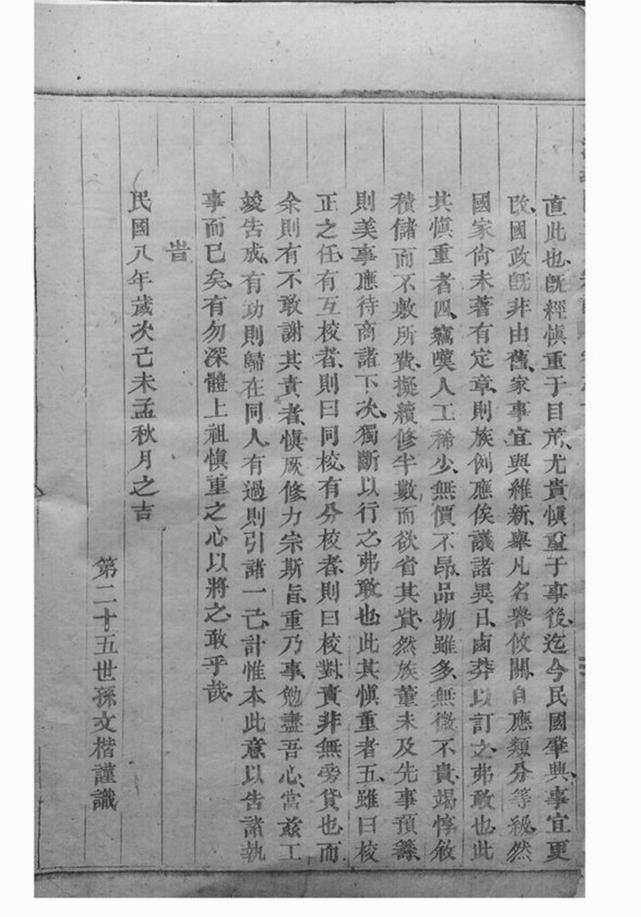 直此也既經慎重于目前、尤貴慎重于事後、迄今民國肇典、事宜更
改、國政旣非由舊、家事宜與維新、舉凡名譽攸關、自應類分等級、然
國家尙未著有定章、則族例應俟議諸異日、鹵莽以訂之弗敢也、此
其愼重者四、竊嘆人工稀少、無價不昂、品物雖多、無微不貴、竭惇敘
積儲而不敷所費、擬續修半數而欲省其貲、然族董未及先事預籌、
則美事應待商諸下次、獨斷以行之弗敢也、此其愼重者五、雖曰校
正之任、有互校者、則曰同校、有分校者、則曰校對、責非無旁貸也、而
余則有不敢謝其責者、愼厥修力宗斯旨、重乃事勉盡吾心、當茲工
竣告成、有功則歸在同人、有過則引諸一己、計惟本此意以告諸執
事而已矣、有勿深體上祖愼重之心以將之敢乎哉、
旹
民國八年歲次己未孟秋月之吉
第二十五世孫文楷謹識